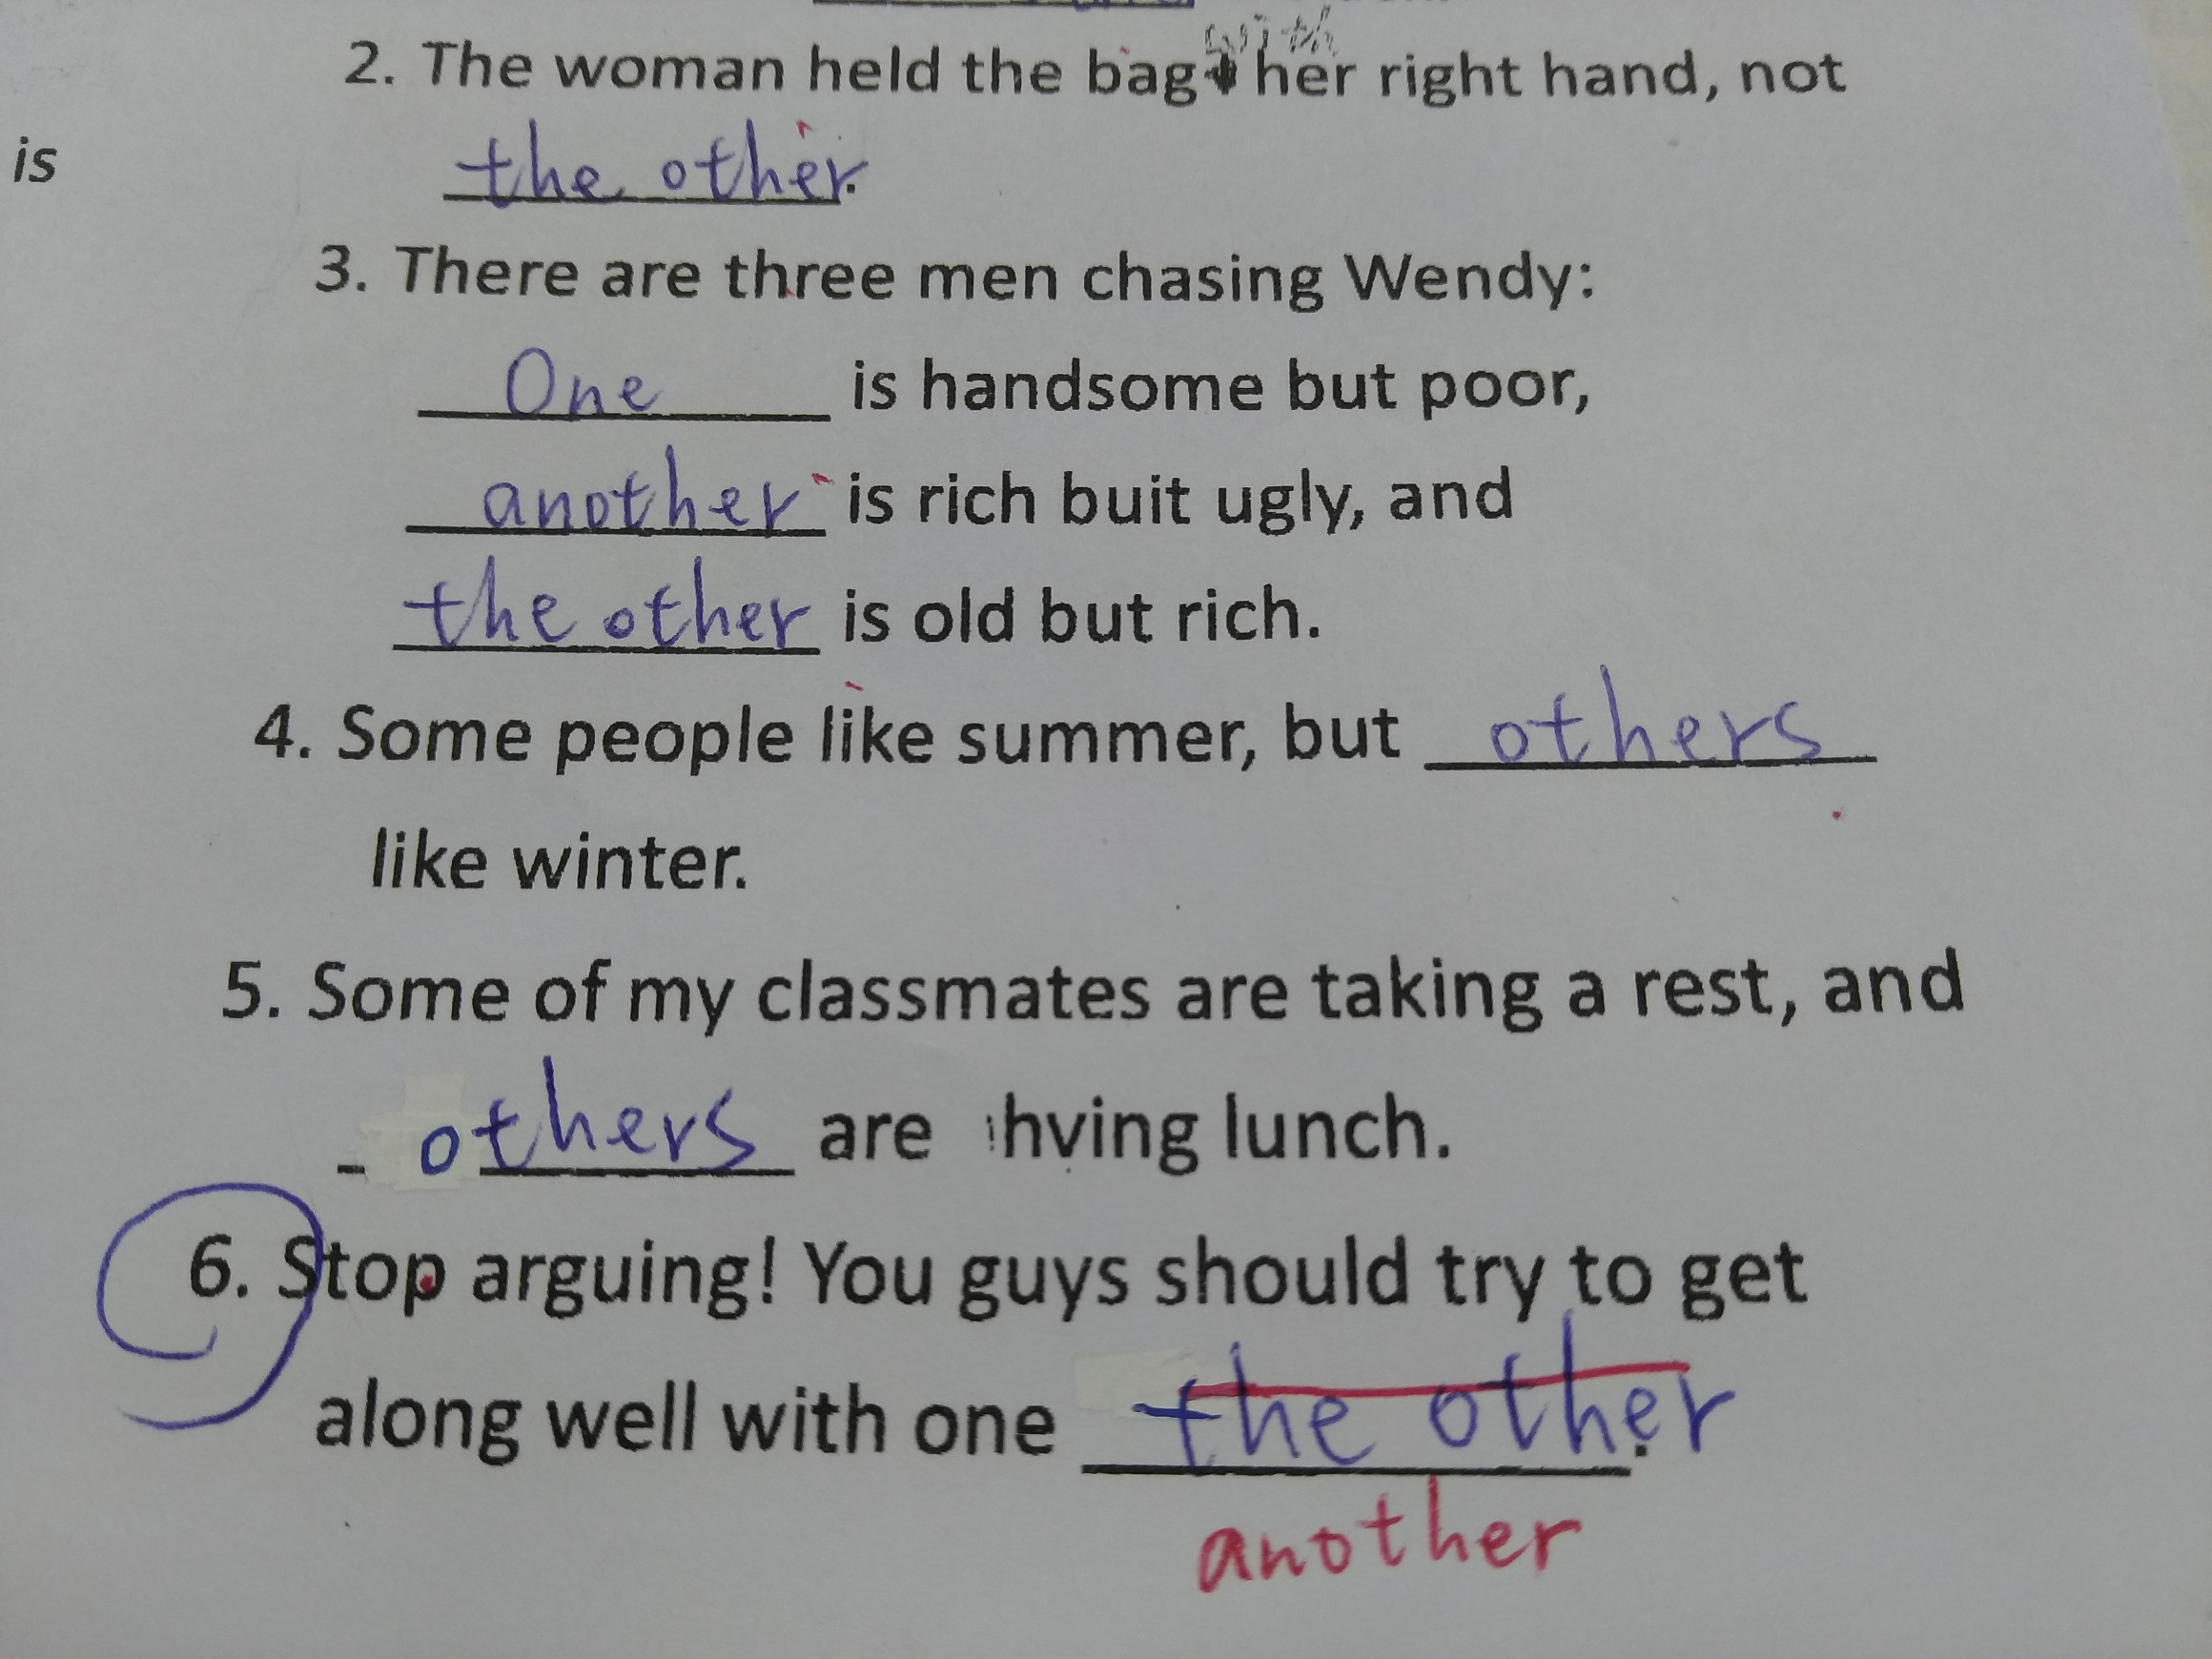 with
2. The woman held the bag her right hand, not
is
the other.
3. There are three men chasing Wendy:
One is handsome but poor,
another is rich buit ugly, and
the other is old but rich.
4. Some people like summer, but others
like winter.
5. Some of my classmates are taking a rest, and
others are hving lunch.
6. Stop arguing! You guys should try to get
along well with one the other.
another